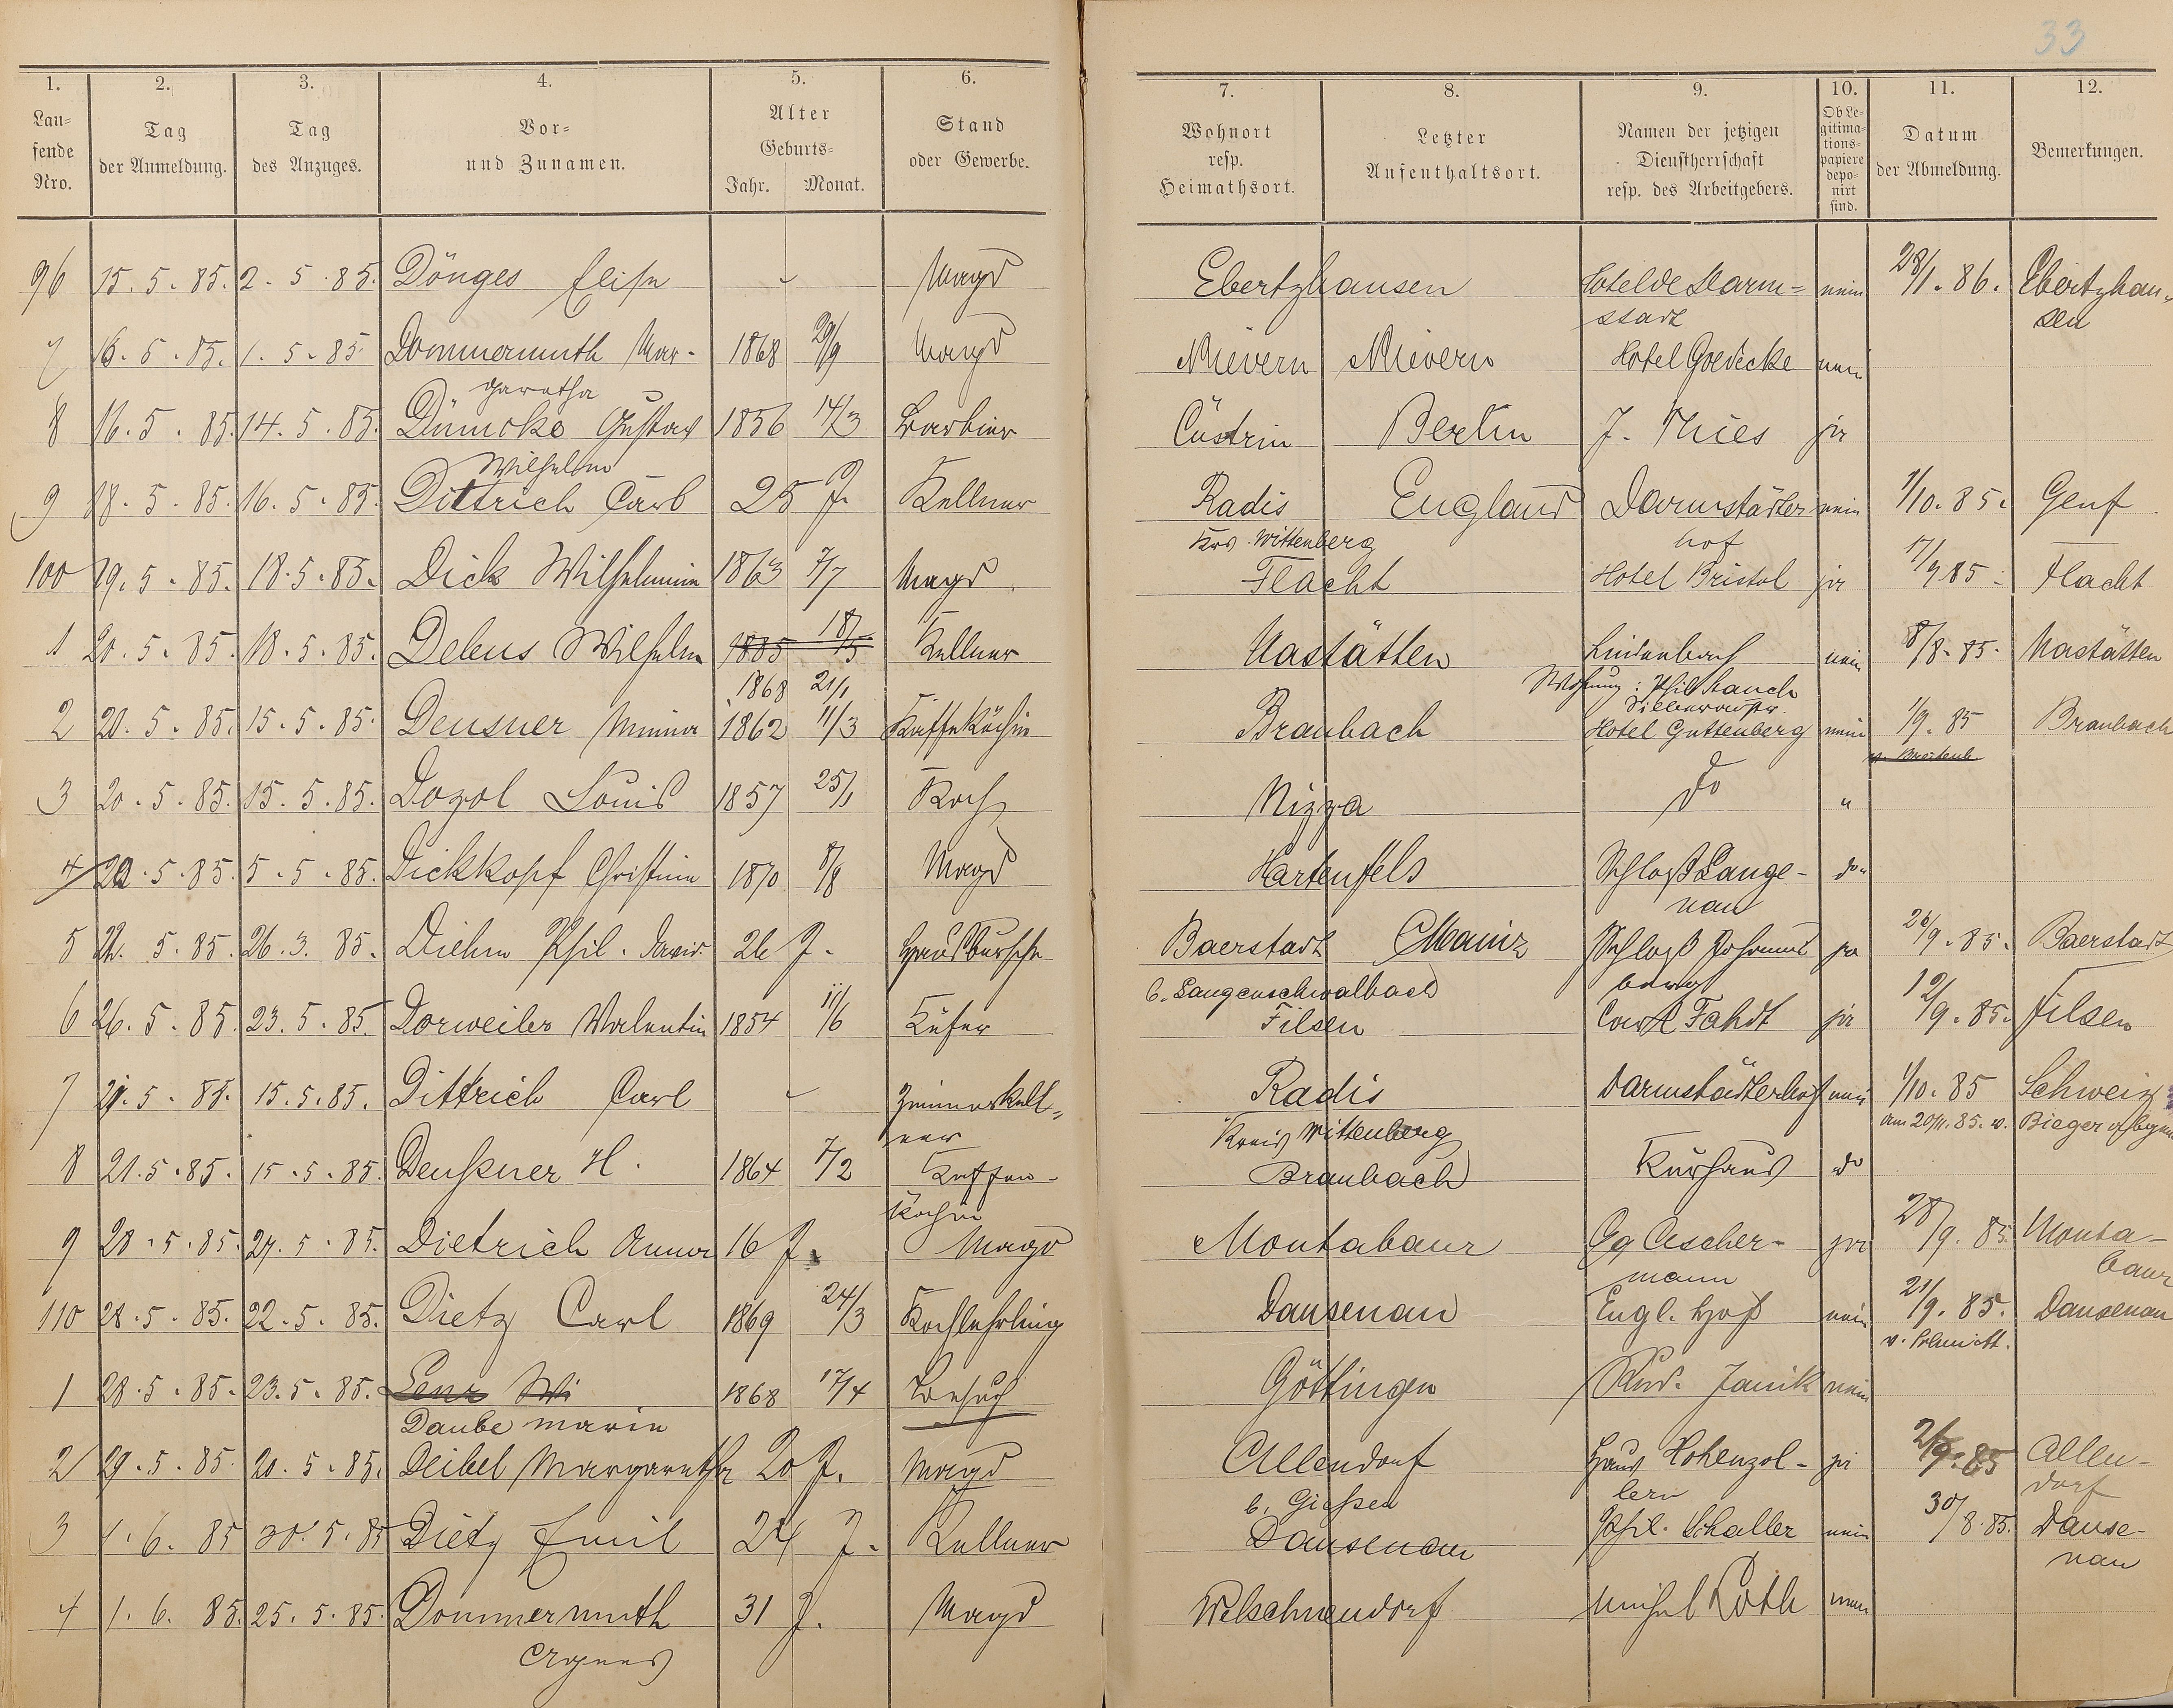 33
1. 2. 3. 4. 5. 6. 7. 8. 9. 10. 11. 12.
Lau-
fende
Nro.
Tag
der Anmeldung.
Tag
des Anzuges.
Vor-
und Zunamen.
Alter
Geburts-
Jahr. Monat.
Stand
oder Gewerbe.
Wohnort
resp.
Heimathsort.
Letzter
Aufenthaltsort.
Namen der jetzigen
Dienstherrschaft
resp. des Arbeitgebers.
Ob Le-
gitima-
tions-
papiere
depo-
nirt
sind.
Datum
der Abmeldung.
Bemerkungen.
96 15.5.85. 2.5.85. Dönges Elise - Magd Ebertzhausen Hotel de Darm- nein 28/1.86. Ebertzhau-
stadt sen
7 16.5.85. 1.5.85 Dommermuth Mar- 1868 29/9 Magd Nievern Nievern Hotel Goedecke nein
garetha
8 16.5.85. 14.5.85. Dümcke Gustav 1856 14/3 Barbier Cüstrin Berlin J. Thies ja
Wilhelm
9 18.5.85. 16.5.85. Dittrich Carl 25 J. Kellner Radis England Darmstädter nein 1/10.85. Genf.
Krs. Wittenberg hof
100 19.5.85. 18.5.85. Dick Wilhelmine 1863 7/7 Magd. Flacht Hotel Bristol ja 17/9 85. Flacht
1 20.5.85. 18.5.85. Debus Wilhelm 1885 18/5 Kellner Nastätten Lindenbach nein 8/8.85. Nastätten
1868 21/1 Wohnung: Phil. Rauch
2 20.5.85. 15.5.85. Deusner Minna 1862 11/3 Kaffeköchin Braubach Hotel Guttenberg nein 1/9.85 Braubach
3 20.5.85. 15.5.85. Dozol Louis 1857 25/1 Koch Nizza do "
4 20.5.85. 5.5.85. Dickkopf Christine 1870 8/8 Magd Hartenfels Schloß Lange- do
nau
5 22.5.85. 26.3.85. Diehm Phil. David 26 J. Hausbursche Baerstadt Mainz Schloß Johannis ja 26/9.85. Baerstadt
b. Langenschwalbach berg
6 26.5.85. 23.5.85. Dorweiler Valentin 1854 11/6 Küfer Filsen Carl Fahdt ja 12/9.85. Filsen
7 21.5.85. 15.5.85. Dittrich Carl - Zimmerkell- Radis Darmstädterhof nein 1/10.85 Schweiz
ner Kreis Wittenberg am 20/11.85. v. Bieger
8 21.5.85. 15.5.85. Deußner H. 1864 7/2 Kaffee- Braubach Kurhaus do
köchin
9 28.5.85. 27.5.85. Dietrich Anna 16 J. Magd Montabaur Gg Ascher- ja 28/9.85. Monta-
mann baur
110 28.5.85. 22.5.85. Dietz Carl 1869 24/3 Kochlehrling Dausenau Engl. Hof nein 21/9.85. Dausenau
v. Schmitt.
1 28.5.85. 23.5.85. Lenz Wi 1868 17/4 Besuch Göttingen Rud. Janik nein
Daube Marie
2 29.5.85. 20.5.85. Deibel Margaretha 20 J. Magd Allendorf Haus Hohenzol- ja 2/9.85 Allen-
b. Gießen lern dorf
3 1.6.85 30.5.85 Dietz Emil 24 J. Kellner Dausenau Phil. Schaller nein 30/8.85. Dause-
nau
4 1.6.85. 25.5.85. Dommermuth 31 J. Magd Welschneudorf Michel Roth nein
Agnes